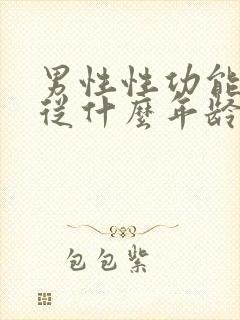 男性性功能
從什麼年齡
包包紫